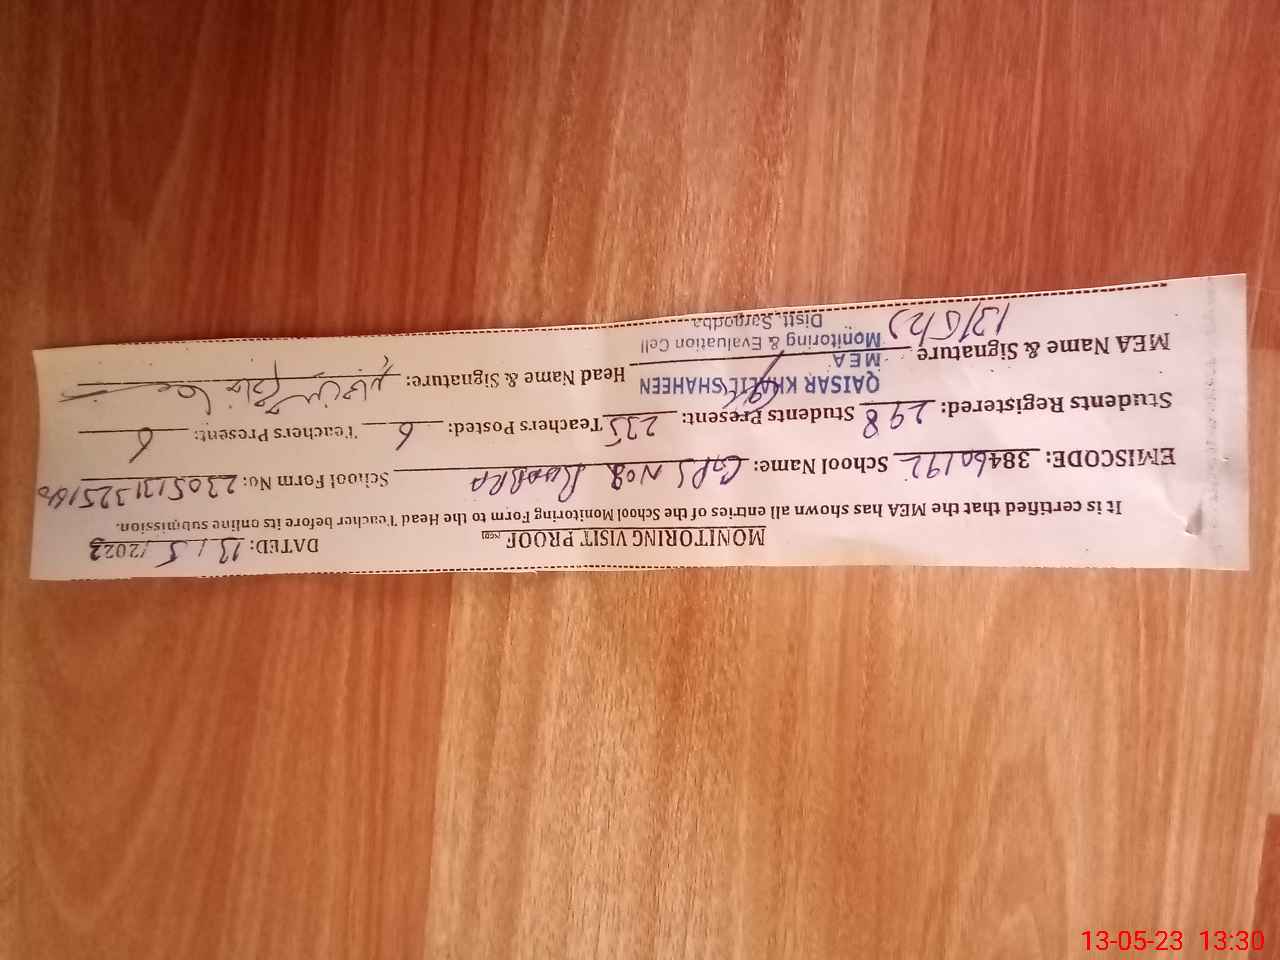 MONITORING VISIT PROOF DATED: 13/5/2023
It is certified that the MEA has shown all entries of the School Monitoring Form to the Head Teacher before its online submission.
EMISCODE: 38460192 School Name: GPS NO2 School Form No:
Students Registered: 298 Students Present: 235 Teachers Posted: 6 Teachers Present: 6
MEA Name & Signature Head Name & Signature:
QAISAR KHALIL SHAHEEN
MEA
Monitoring & Evaluation Cell
Distt. Sargodha
13-05-23 13:30